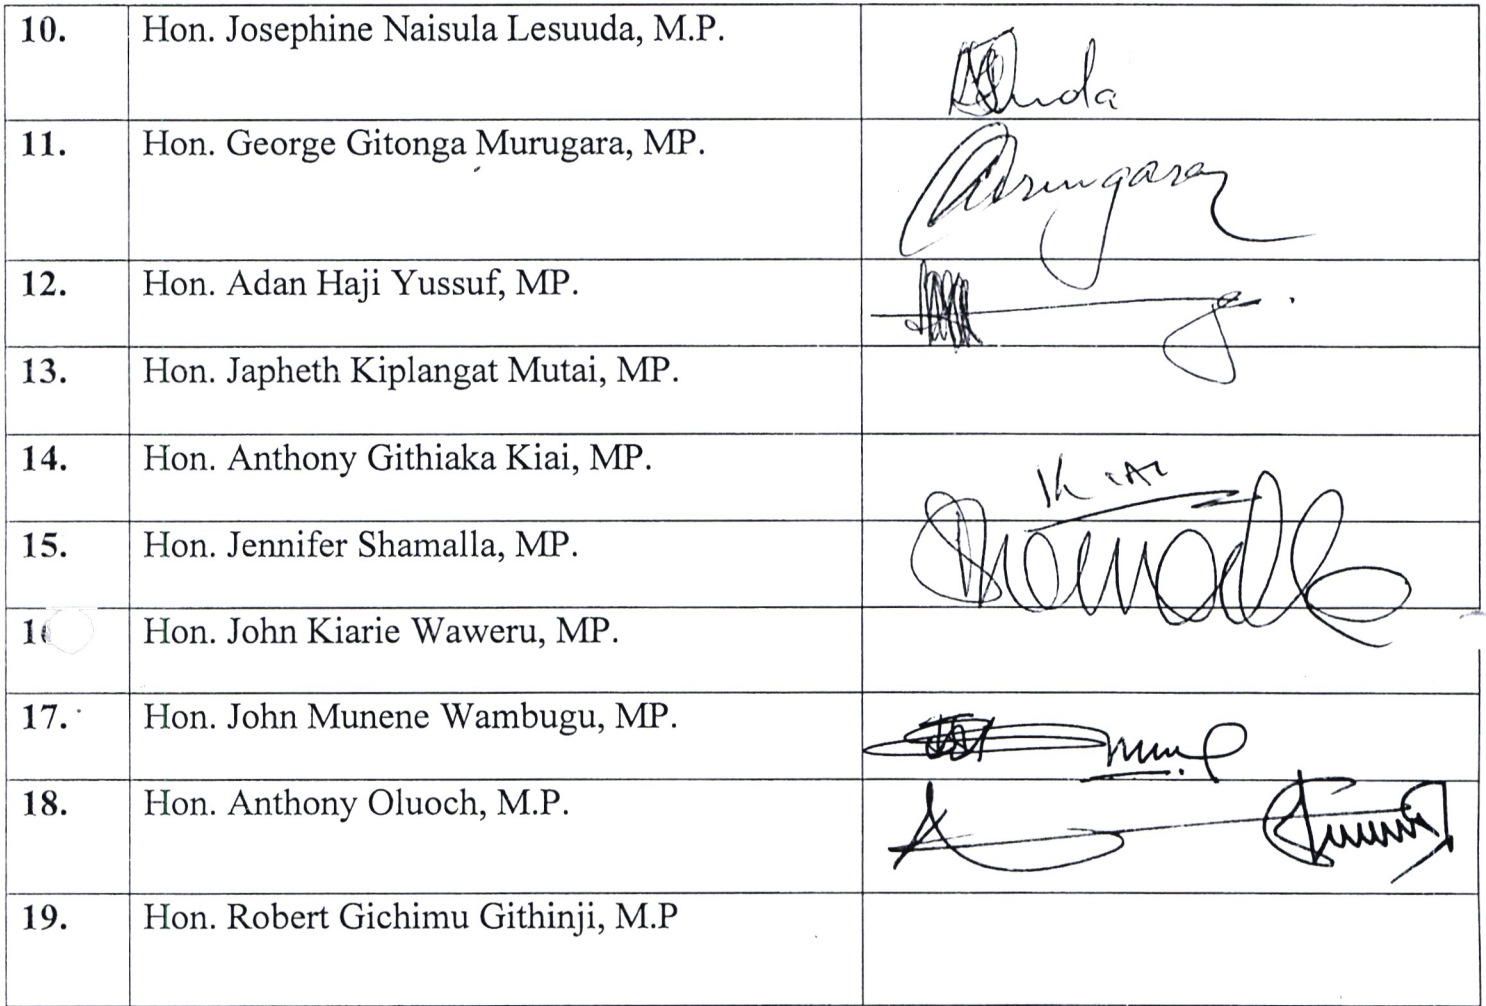 10. Hon. Josephine Naisula Lesuuda, M.P.
11. Hon. George Gitonga Murugara, MP.
12. Hon. Adan Haji Yussuf, MP.
13. Hon. Japheth Kiplangat Mutai, MP.
14. Hon. Anthony Githiaka Kiai, MP. Kiai
15. Hon. Jennifer Shamalla, MP.
Hon. John Kiarie Waweru, MP.
17. Hon. John Munene Wambugu, MP.
18. Hon. Anthony Oluoch, M.P.
19. Hon. Robert Gichimu Githinji, M.P